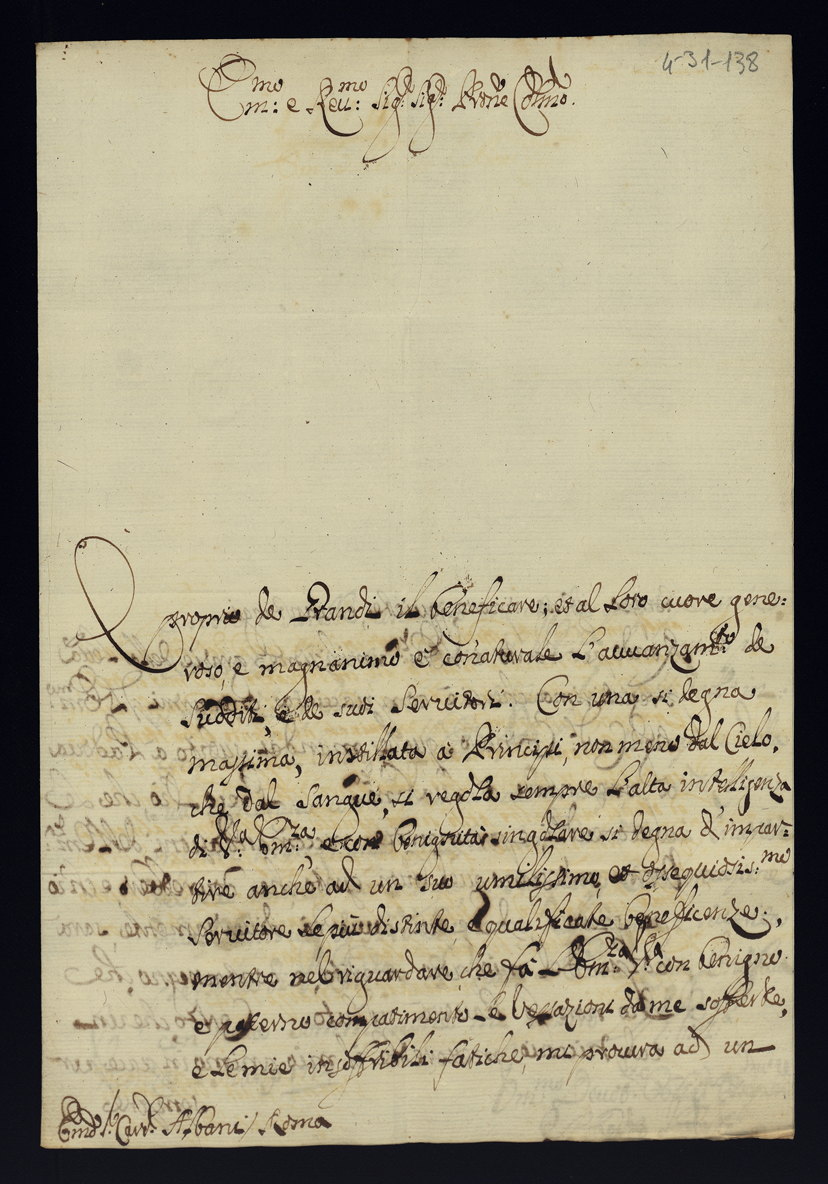 4-31-138
Em:mo e Reu:mo Sig:r Sig:r Prone Colmo.
È proprio de Grandi il beneficare; et al loro cuore gene:
roso, e magnanimo è conaturale l'auuanzam:to de
Sudditi, e de suoi Seruitori. Con una si degna
massima, instillata a Principi, non meno dal Cielo,
che dal Sangue, si regola sempre l'alta intelligenza
di V:a Em:za e con benignità singolare si degna d'impar:
tire anche ad un suo umilissimo, et ossequiosis:mo
Seruitore le più distinte, e qualificate beneficenze;
mentre nel riguardare, che fà l'Em:za V:a con benigno
e paterno compatimento le vessazioni da me sofferte,
e le mie insoffribili fatiche, mi procura ad un
Emo S:r Card: Albani / Roma